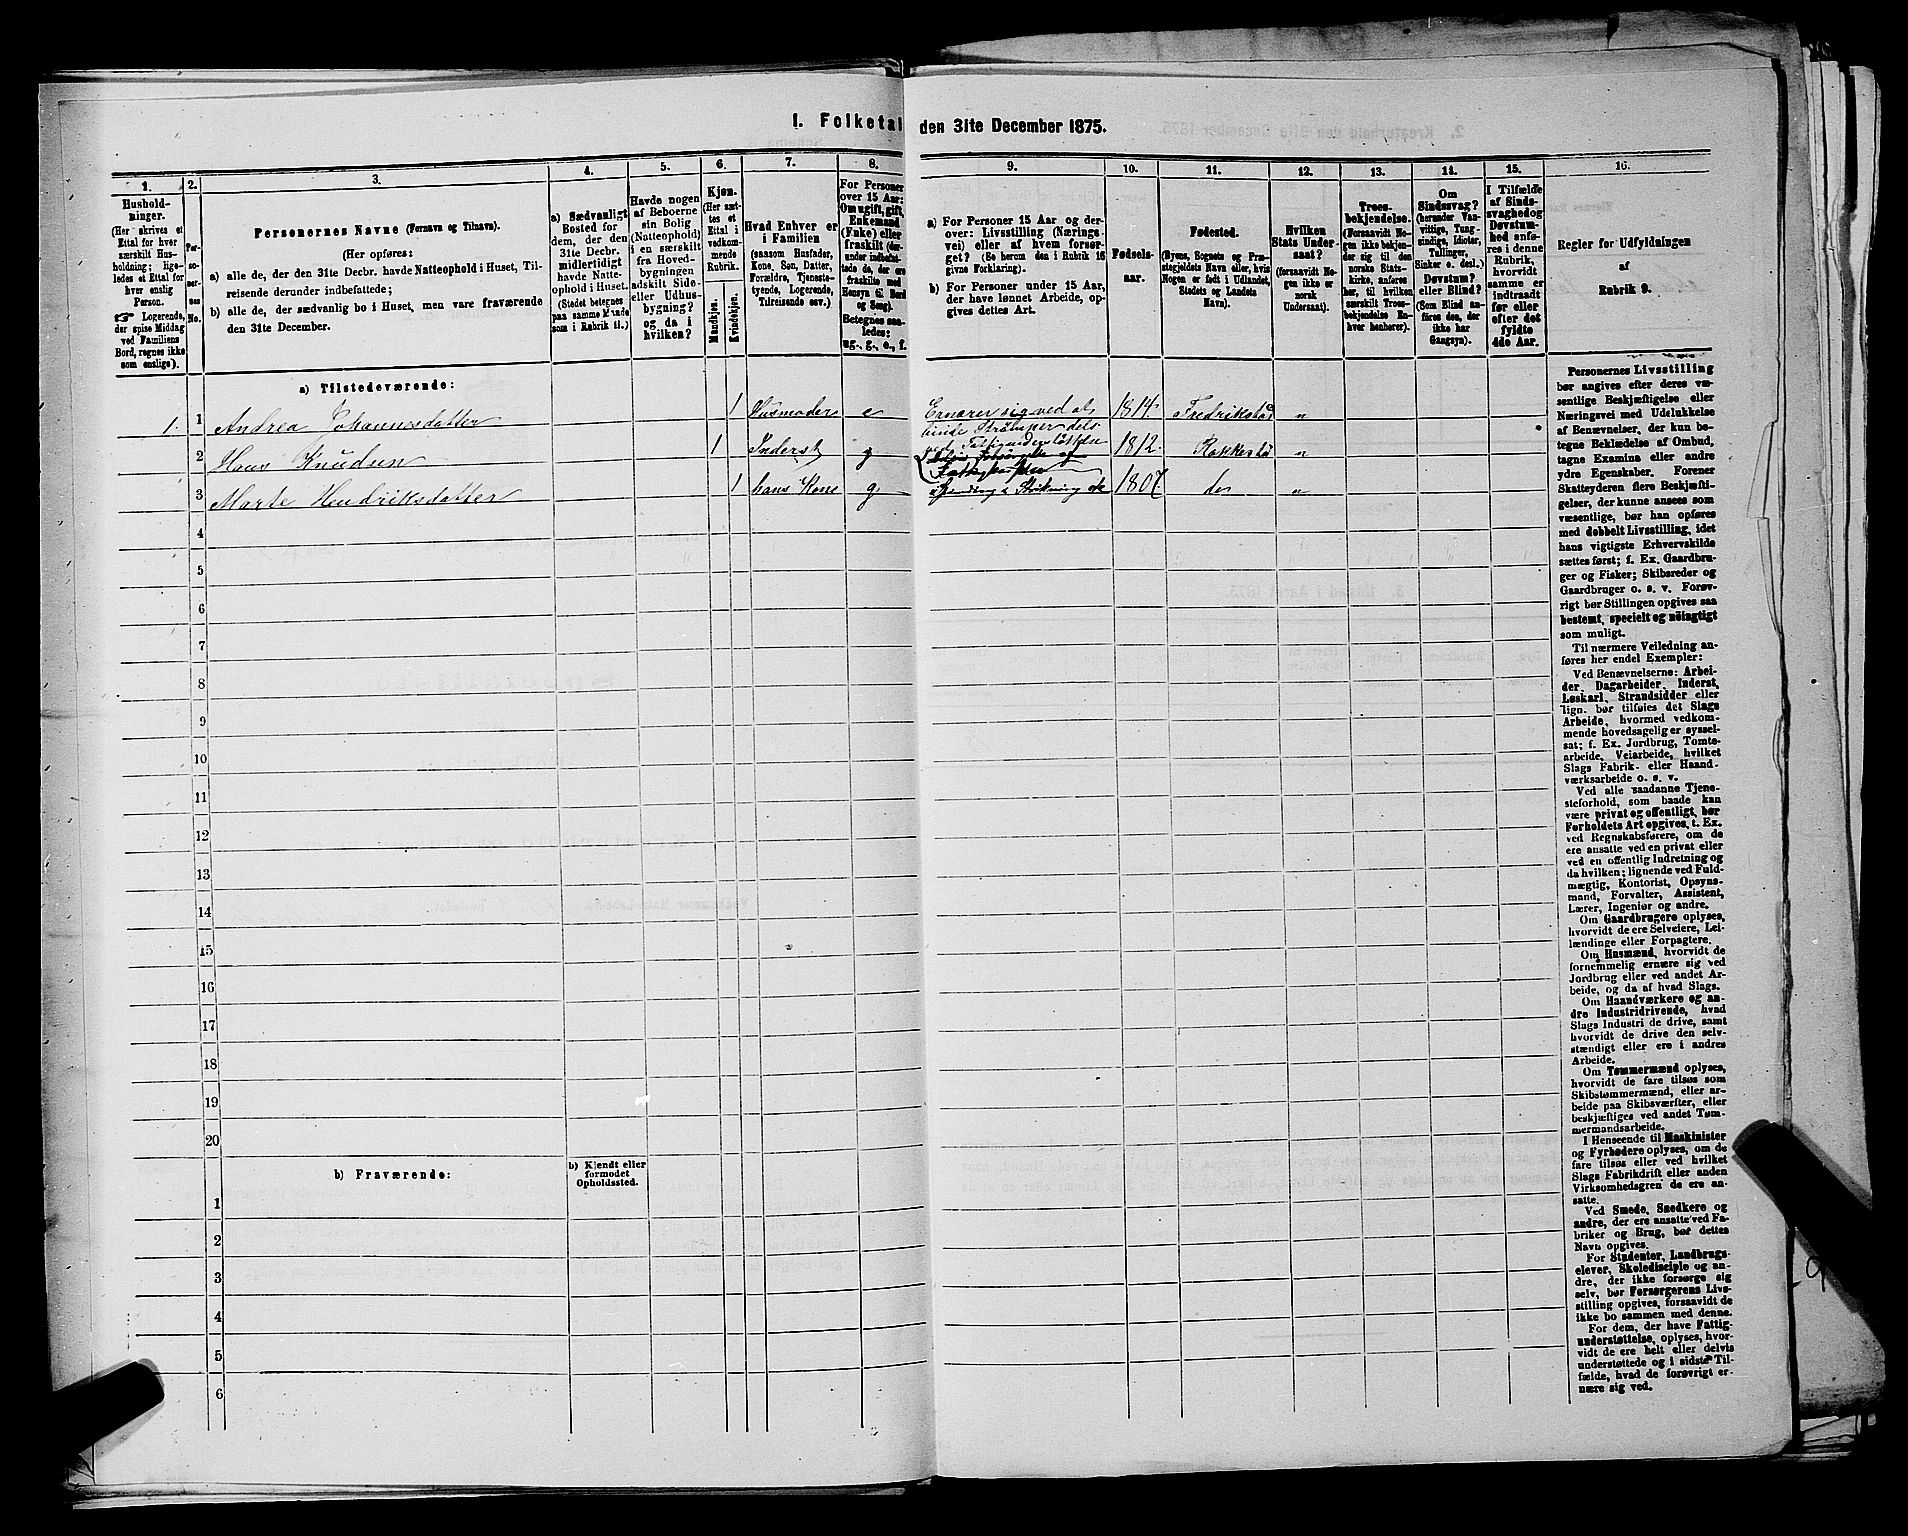 1. Folketal den 31te December 1875.
1.
Husholdninger.
(Her skrives et
Ettal for hver
særskilt Husholdning;
ligeledes et Ettal for
hver enslig
Person.
☞ Logerende,
der spise Middag
ved Familiens
Bord, regnes ikke
som enslige).
2.
Personernes
No.
3.
Personernes Navne (Fornavn og Tilnavn).
(Her opføres:
a) alle de, der den 31te Decbr. havde Natteophold i Huset, Tilreisende derunder indbefattede;
b) alle de, der sædvanlig bo i Huset, men vare fraværende
den 31te December.
4.
a) Sædvanligt
Bosted for
dem, der den
31te Decbr.
midlertidigt
havde Natteophold i Huset.
(Stedet betegnes
paa samme Maade
som i Rubrik 11.)
5.
Havde nogen
af Beboerne
sin Bolig
(Natteophold)
i en særskilt
fra Hovedbygningen
adskilt Side-
eller Udhusbygning?
og da i
hvilken?
6.
Kjøn.
(Her sættes et
Ettal i
vedkommende
Rubrik.
Mandkjøn.
Kvindekjøn.
7.
Hvad Enhver er
i Familien
(saasom Husfader,
Kone, Søn, Datter,
Forældre, Tjenestetyende, Logerende,
Tilreisende osv.)
8.
For Personer
over 15 Aar:
Om ugift, gift,
Enkemand
(Enke) eller
fraskilt
Betegnes saaledes:
ug., g., e., f.
9.
a) For Personer 15 Aar og derover: Livsstilling (Næringsvei) eller af hvem forsørget? (Se herom den i Rubrik 16
givne Forklaring).
b) For Personer under 15 Aar,
der have lønnet Arbeide, opgives dettes Art.
10.
Fødselsaar.
11.
Fødested.
(Byens, Sognets og Præstegjeldets Navn eller, hvis
Nogen er født i Udlandet,
Stedets og Landets
Navn).
12.
Hvilken
Stats Undersaat?
(forsaavidt Nogen ikke er
norsk
Undersaat).
13.
Troesbekjendelse.
(Forsaavidt Nogen ikke bekjender sig til den
norske Statskirke, anføres
her, til hvilken
særskilt Troesbekjendelse Enhver henhører).
14.
Om
Sindssvag?
(herunder Vanvittige, Tungsindige, Idioter,
Tullinger,
Sinker o. desl.)
Døvstum?
eller Blind?
(Som Blind anføres den, der
ikke har
Gangsyn).
15.
I Tilfælde
af Sindssvaghed og
Døvstumhed anføres i denne
Rubrik,
hvorvidt
samme er
indtraadt
før eller
efter det
fyldte
4de Aar.
16.
Regler for Udfyldningen
af
Rubrik 9.
a) Tilstedeværende:
1. 1 Andrea Johannesdatter 1 Husmoder e Ernærer sig ved at 1814. Fredrikstad "
binde Strømper
2 Hans Knudsen 1 Inderst g 1812. Rakkestad "
3 Marte Hendriksdatter 1 hans Kone g 1807 do "
4
5
6
7
8
9
10
11
12
13
14
15
16
17
18
19
20
b) Fraværende:
b) Kjendt eller
formodet
Opholdssted.
1
2
3
4
5
6
Personernes Livsstilling
bør angives efter deres væsentlige Beskjæftigelse eller
Næringsvei med Udelukkelse
af Benævnelser, der kun betegne Beklædelse af Ombud,
tagne Examina eller andre
ydre Egenskaber. Forener
Skatteyderen flere Beskjæftigelser, der kunne ansees som
væsentlige, bør han opføres
med dobbelt Livsstilling, idet
hans vigtigste Erhvervskilde
sættes først; f. Ex. Gaardbruger og Fisker; Skibsreder og
Gaardbruger o. s. v. Forøvrigt bør Stillingen opgives saa
bestemt, specielt og nøiagtigt
som muligt.
Til nærmere Veiledning anføres her endel Exempler:
Ved Benævnelserne: Arbeider, Dagarbeider, Inderst,
Løskarl, Strandsidder eller
lign. bør tilføies det Slags
Arbeide, hvormed vedkommende hovedsagelig er sysselsat; f. Ex. Jordbrug, Tomtearbeide, Veiarbeide, hvilket
Slags Fabrik- eller Haandværksarbeide o. s. v.
Ved alle saadanne Tjenesteforhold, som baade kan
være privat og offentligt, bør
Forholdets Art opgives, t. Ex.
ved Regnskabsførere, om de
ere ansatte ved en privat eller
ved en offentlig Indretning og
da hvilken; lignende ved Fuldmægtig, Kontorist, Opsynsmand, Forvalter, Assistent,
Lærer, Ingeniør og andre.
Om Gaardbrugere oplyses,
hvorvidt de ere Selveiere, Leilændinge eller Forpagtere.
Om Husmænd, hvorvidt de
fornemmelig ernære sig ved
Jordbrug eller ved andet Arbeide, og da af hvad Slags.
Om Haandværkere og andre Industridrivende, hvad
Slags Industri de drive, samt
hvorvidt de drive den selvstændigt eller ere i andres
Arbeide.
Om Tømmermænd oplyses,
hvorvidt de fare tilsøs som
Skibstømmermænd, eller arbeide paa Skibsværfter, eller
beskjæftiges ved andet Tømmermandsarbeide.
I Henseende til Maskinister
og Fyrbødere oplyses, om de
fare tilsøs eller ved hvilket
Slags Fabrikdrift eller anden
Virksomhedsgren de ere ansatte.
Ved Smede, Snedkere og
andre, der ere ansatte ved Fabriker og Brug, bør dettes
Navn opgives.
For Studenter, Landbrugselever, Skoledisciple og andre, der ikke forsørge sig
selv, bør Forsørgerens Livsstilling opgives, forsaavidt de
ikke bo sammen med denne.
For dem, der have Fattigunderstøttelse, oplyses, hvorvidt de ere helt eller delvis
understøttede og i sidste Tilfælde, hvad de forøvrigt ernære sig ved.